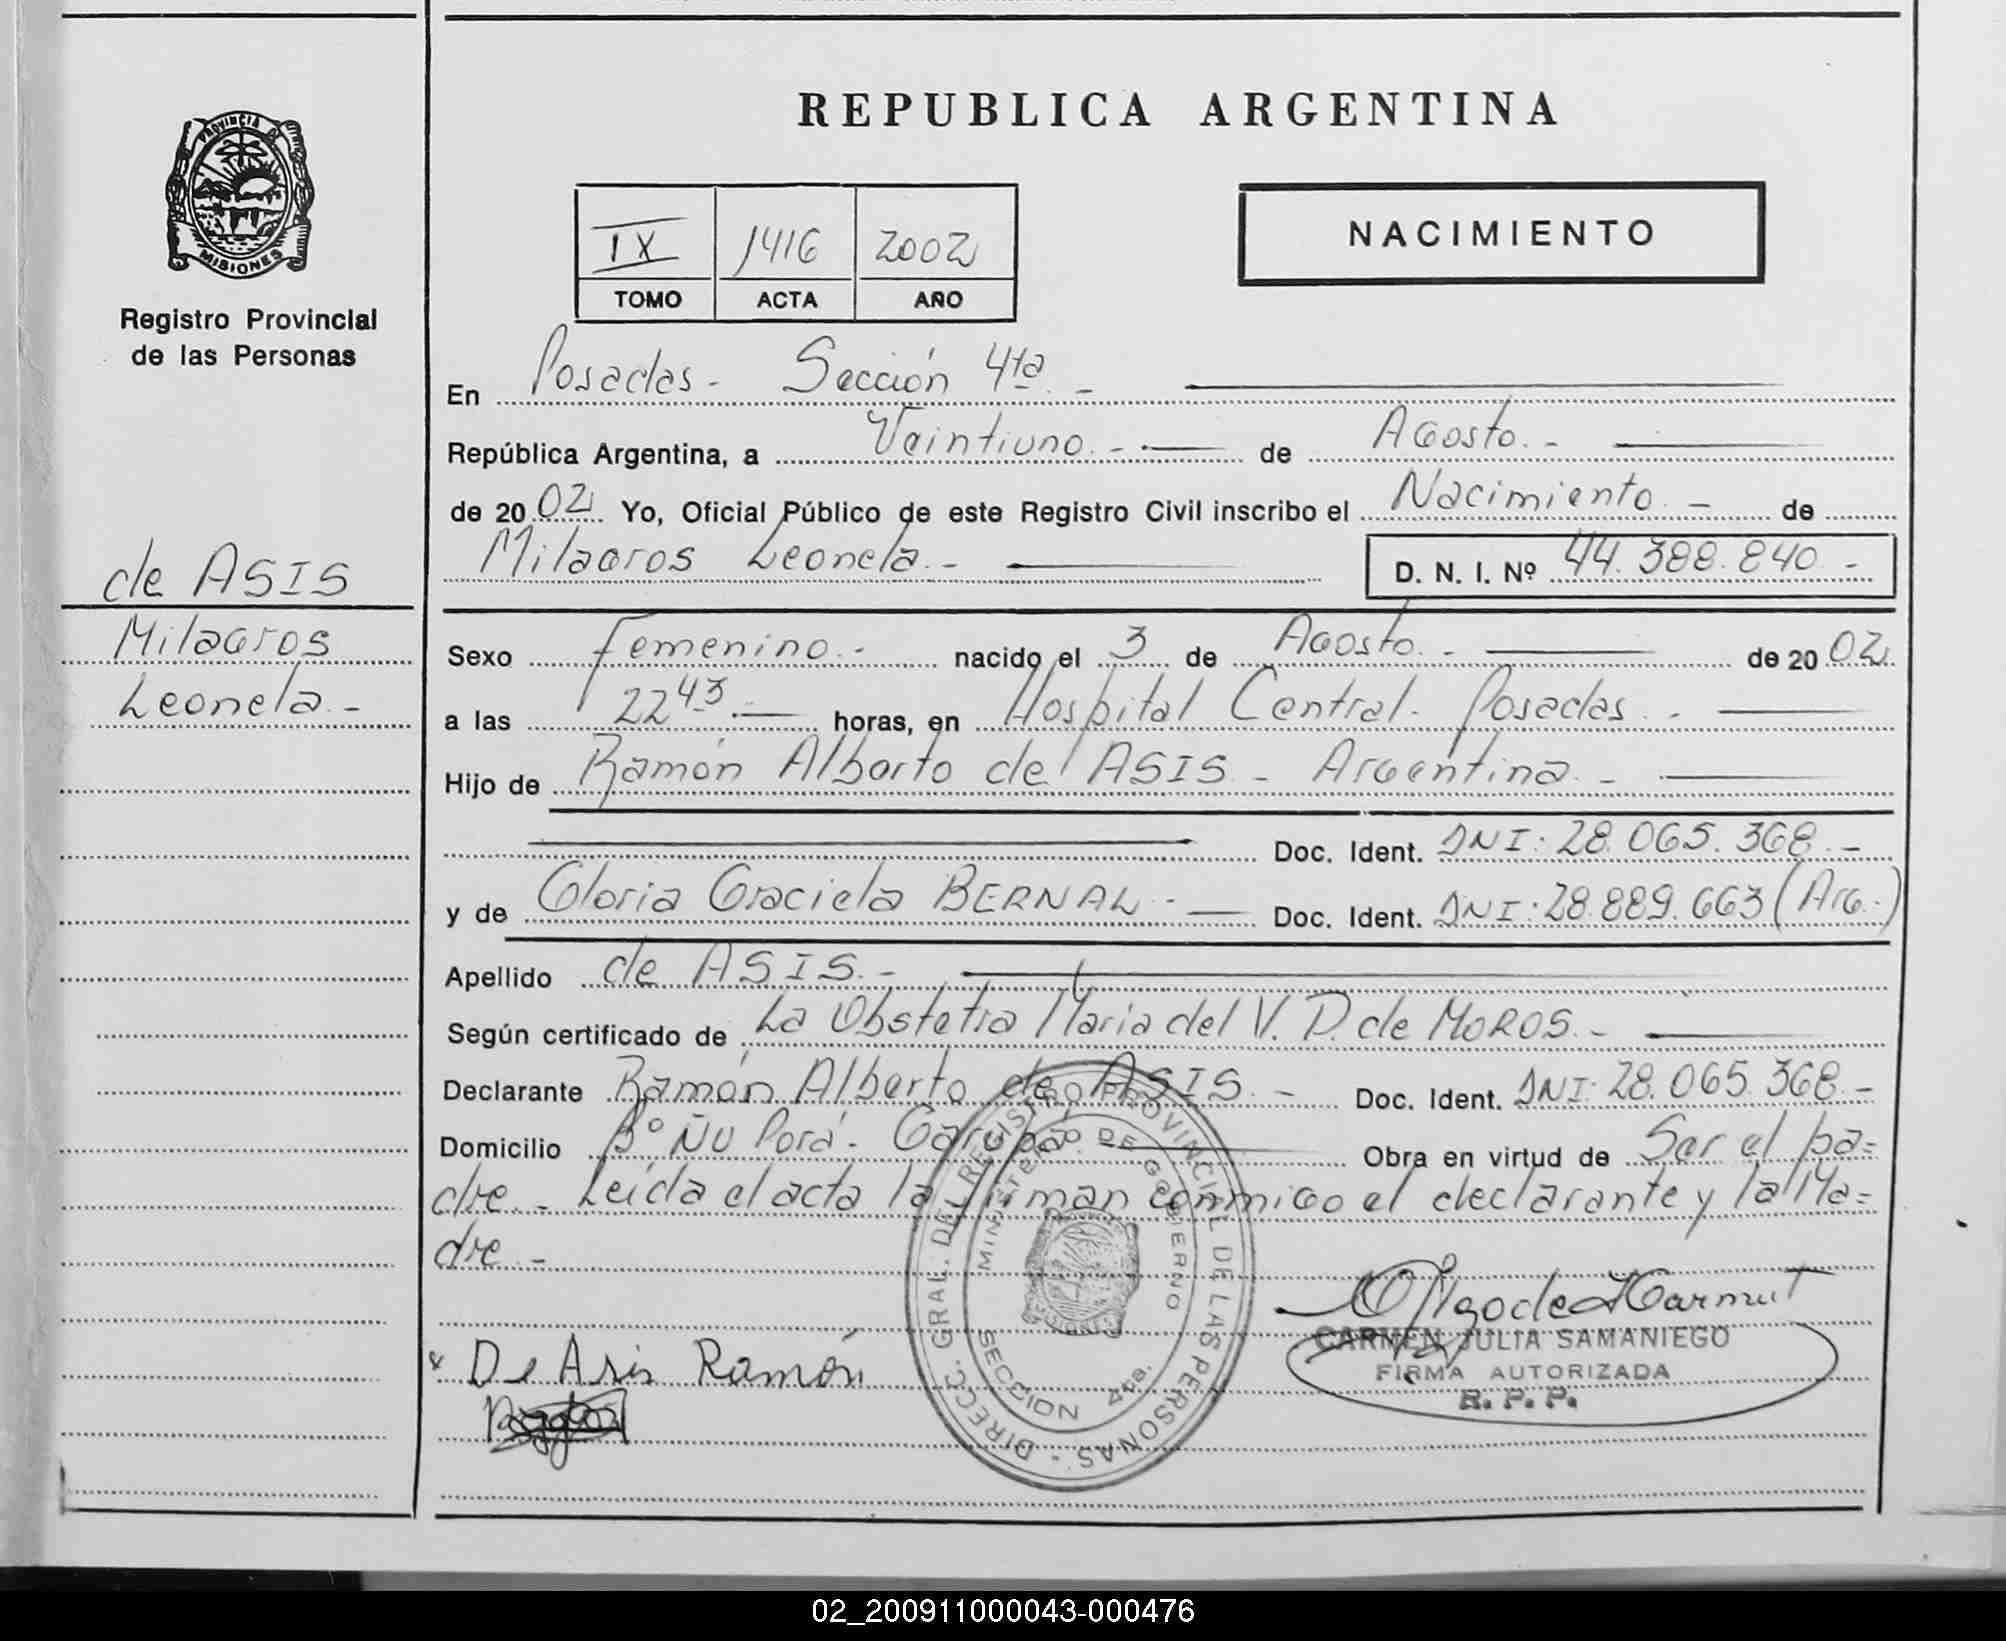 REPUBLICA ARGENTINA
PROVINCIA D
MISIONES
Registro Provincial
de las Personas
IX 1416 2002
TOMO ACTA AÑO
NACIMIENTO
En Posadas - Sección 4ta -
República Argentina, a Veintiuno - de Agosto -
de 2002 Yo, Oficial Público de este Registro Civil inscribo el Nacimiento - de
Milagros Leonela - D. N. I. Nº 44.388.840 -
de ASIS
Milagros
Leonela -
Sexo Femenino - nacido el 3 de Agosto - de 2002
a las 22 43 horas, en Hospital Central - Posadas -
Hijo de Ramón Alberto de ASIS - Argentina -
Doc. Ident. DNI: 28.065.368 -
y de Gloria Graciela BERNAL - Doc. Ident. DNI: 28.889.663 (Arg.)
Apellido de ASIS -
Según certificado de La Obstetra Maria del V. D. de MOROS -
Declarante Ramón Alberto de ASIS - Doc. Ident. DNI: 28.065.368 -
Domicilio Bº Ñu Porá - Garupá Obra en virtud de Ser el pa=
dre - Leída el acta la firman conmigo el declarante y la Ma=
dre -
DIREC. GRAL. DEL REGISTRO PROVINCIAL DE LAS PERSONAS -
MINISTERIO DE GOBIERNO
SECCION 4ta.
MISIONES
x De Asis Ramón
CARMEN JULIA SAMANIEGO
FIRMA AUTORIZADA
R. P. P.
02_200911000043-000476